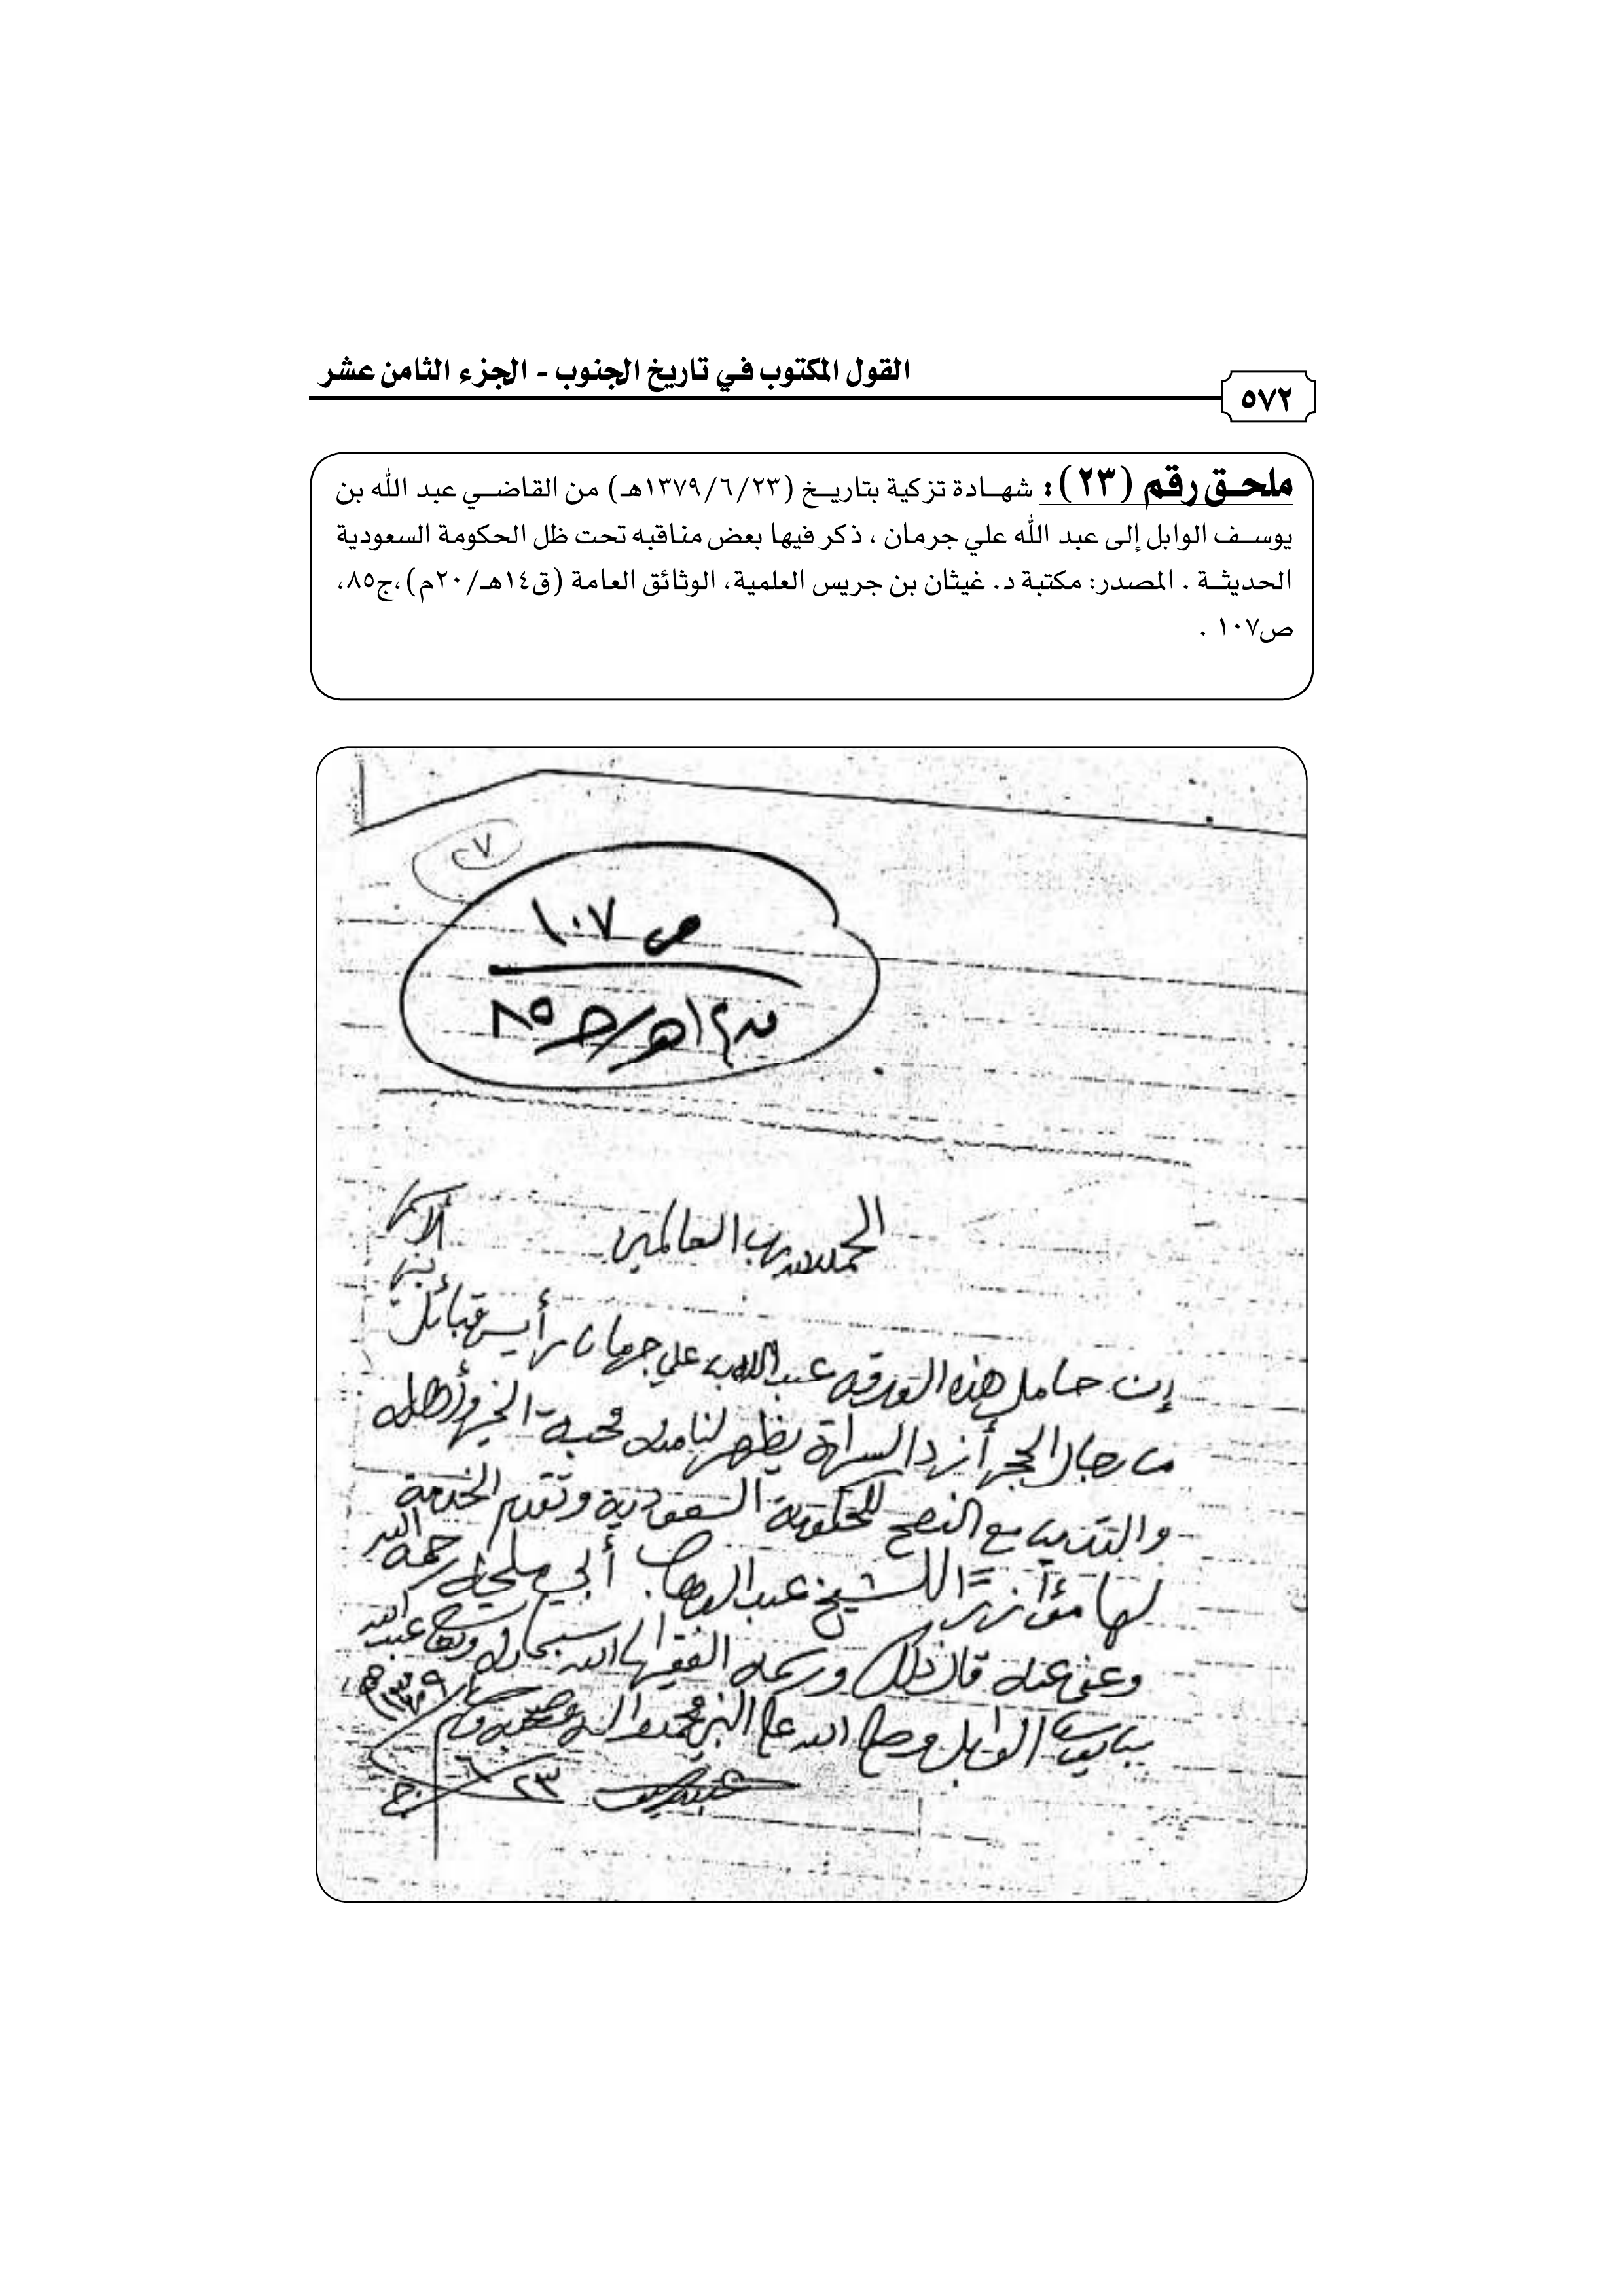 القول المكتوب في تاريخ الجنوب - الجزء الثامن عشر
٥٧٢
ملحق رقم (٢٣): شهادة تزكية بتاريخ (١٣٧٩/٦/٢٣هـ) من القاضي عبد الله بن
يوسف الوابل إلى عبد الله علي جرمان ، ذكر فيها بعض مناقبه تحت ظل الحكومة السعودية
الحديثة . المصدر: مكتبة د. غيثان بن جريس العلمية، الوثائق العامة (ق١٤هـ/٢٠م)،ج٨٥،
ص١٠٧ .
ص ١٠٧
ق١٤هـ/ج٨٥
الحمد لله رب العالمين
إن حامل هذه الورقه عبد الله بن علي جرمان رأيس قبائل بني الأسمر
من رجال الحجر أزد السراة يظهر لنا منه محبة الخير وأهله
والتدين مع النصح للحكومة السعودية وتقديم الخدمة
لها مؤازرًا للشيخ عبد الوهاب أبي ملحه رحمه الله
وعفى عنه قال ذلك ورسمه الفقير إلى الله سبحانه وتعالى عبد الله
بن يوسف الوابل وصلى الله على النبي محمد وآله وصحبه وسلم
٢٣ ٦